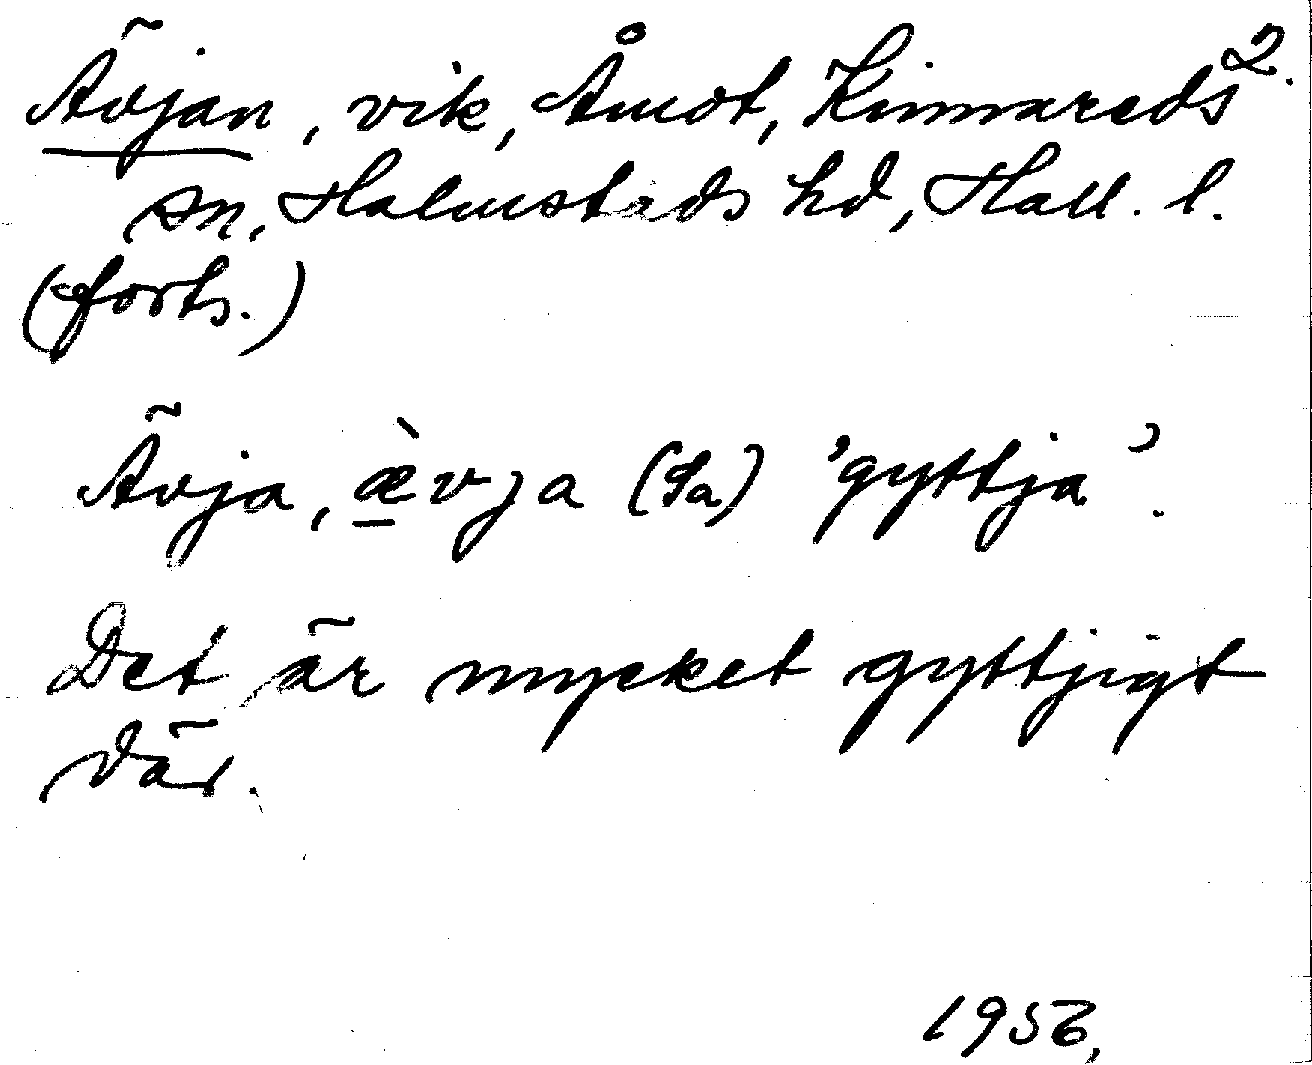 Ävjan, vik, Åmot, Kinnareds 2.
sn, Halmstads hd, Hall. l.
(forts.)
Ävja, æ̠̀vja (Sa) 'gyttja'.
Det är mycket gyttjigt
där.
1956,